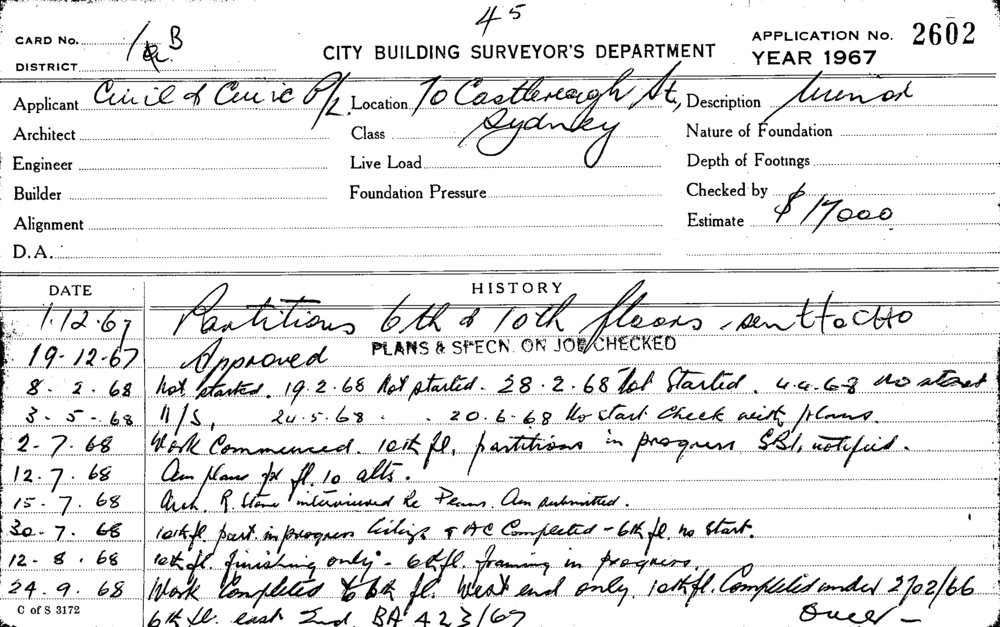 45
CARD No. 1 B
DISTRICT
CITY BUILDING SURVEYOR'S DEPARTMENT
APPLICATION No. 2602
YEAR 1967
Applicant Civil & Civic P/L. Location 70 Castlereagh St, Description Minor
Sydney
Architect Class Nature of Foundation
Engineer Live Load Depth of Footings
Builder Foundation Pressure Checked by
Alignment Estimate $17000
D.A.
DATE HISTORY
1.12.67 Partitions 6th & 10th floors - sent to
19-12-67 Approved PLANS & SPECN. ON JOB CHECKED
8. 2. 68 Not started. 19.2.68 Not started. 28.2.68 Not Started. 4.4.68 No start
3-5-.68 N/S, 24.5.68 . . 20.6.68 No start check with plans.
2-7.68 Work Commenced. 10th fl. partitions in progress SBI. notified.
12.7.68 Am plans for fl. 10 alts.
15.7.68 Arch. R. Stone interviewed Re Am submitted.
30-7.68 10th fl. part. in progress & AC Completed - 6th fl. no Start.
12-8.68 10th fl. finishing only - 6th fl. framing in progress.
24.9.68 Work Completed 6th fl. West end only. 10th fl. Completed under 2702/66
C of S 3172
6th fl. east End. BA 423/67 Over -